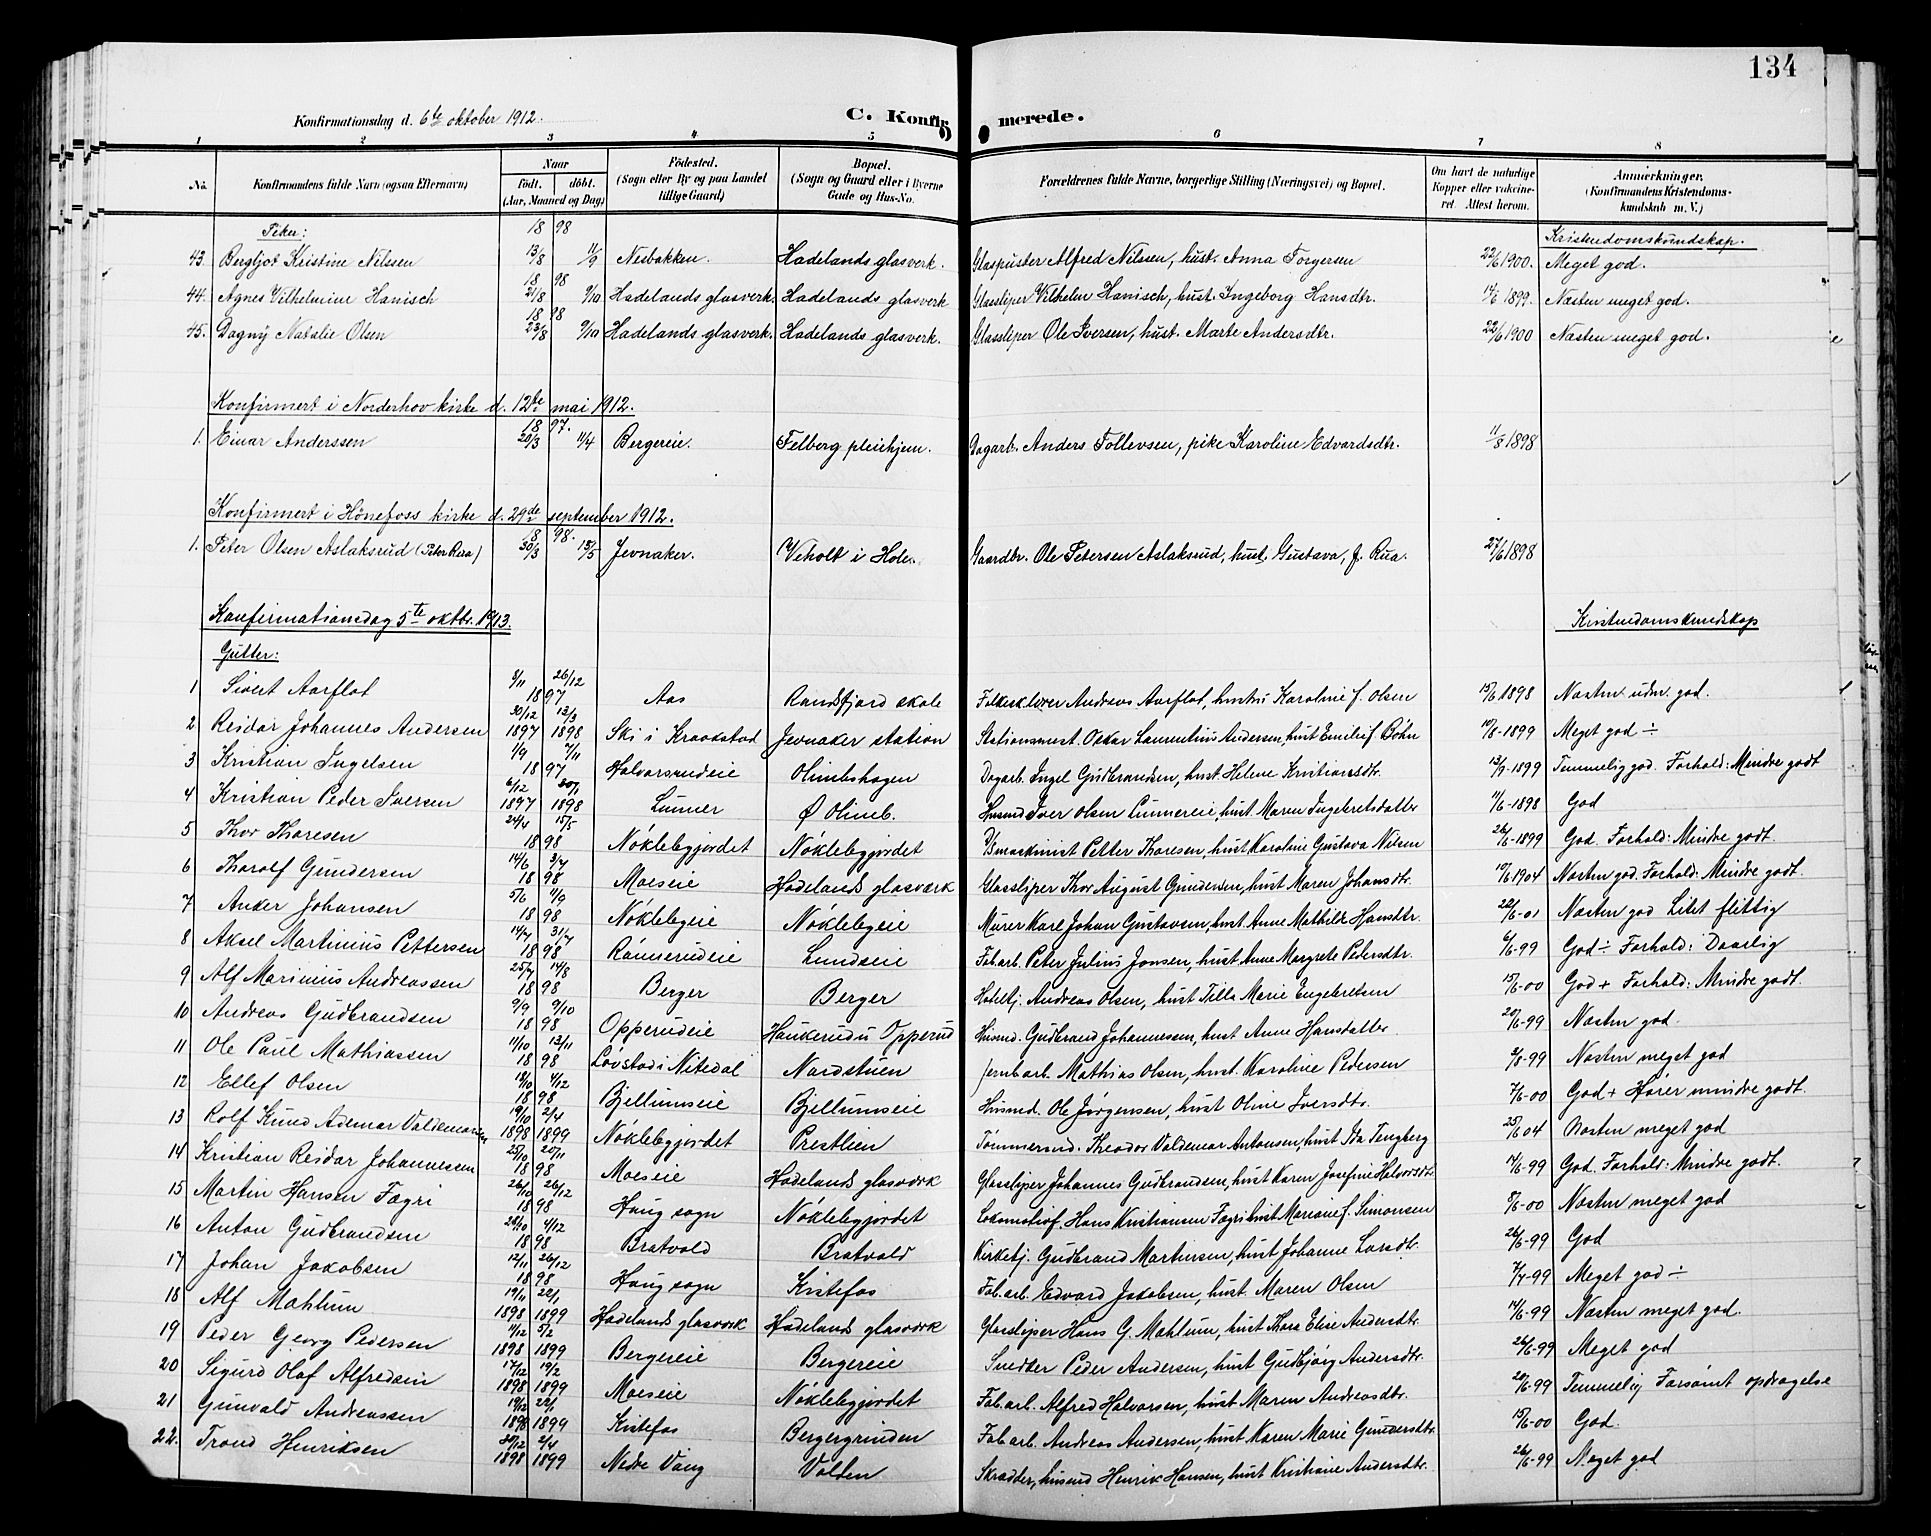 134
Konfirmationsdag d. 6te oktober 1912.
C. Konfirmerede.
1 2 3 4 5 6 7 8
No. Konfirmandens fulde Navn (ogsaa Efternavn) Naar födt. döbt. (Aar, Maaned og Dag) Födested. (Sogn eller By og paa Landet tillige Gaard) Bopæl. (Sogn og Gaard eller i Byerne Gade og Hus-No. Forældrenes fulde Navne, borgerlige Stilling (Næringsvei) og Bopæl. Om havt de naturlige Kopper eller vakcineret. Attest herom. Anmærkninger. (Konfirmandens Kristendomskundskab m. V.)
Piker: 1898 Kristendomskundskap.
43. Bergljot Kristine Nilssen 13/8 11/9 Nesbakken. Hadelands glasverk. Glaspuster Alfred Nilsen, hust. Anna Torgersen 22/6 1900. Meget god.
1898
44. Agnes Vilhelmine Hanisch 21/8 9/10 Hadelands glasverk. Hadelands glasverk Glassliper Vilhelm Hanisch, hust. Ingeborg Hansdtr. 14/6 1899. Næsten meget god.
1898
45. Dagny Natalie Olsen 23/8 9/10 Hadelands glasverk. Hadelands glasverk. Glassliper Ole Iversen, hust. Marte Andersdtr. 22/6 1900 Næsten meget god.
Konfirmert i Norderhov kirke d. 12te mai 1912.
1897.
1. Einar Anderssen 20/3 11/4 Bergereie. Felberg pleiehjem. Dagarb. Anders Tollevsen, pike Karoline Edvardsdtr. 11/8 1898
Konfirmert i Hönefoss kirke d. 29de september 1912.
1898.
1. Peter Olsen Aslaksrud (Peter Rua) 30/3 15/5 Jevnaker. Veholt i Hole. Gaardbr. Ole Petersen Aslaksrud, hust. Gustava, f. Rua. 27/6 1898
Konfirmationsdag 5te oktbr. 1913. Kristendomskundskap
Gutter:
1 Sivert Aarflot 9/11 26/12 1897 Aas Randsfjord skole Folkesk.lærer Andreas Aarflot, hustru Karoline f. Olsen 15/6 1898 Næsten udm. god.
2 Reidar Johannes Andersen 30/12 1897 13/3 1898 Ski i Kraakstad Jevnaker station Stationsmest. Oskar Laurentius Andersen, hust Emilie f Böhn 10/8-1899 Meget god ÷
3 Kristian Ingelsen 1/9 7/11 1897 Halvorsrudeie Olimbshagen Dagarb. Ingel Gudbrandsen, hust Helene Kristiansdtr. 13/9-1899 Temmelig god. Forhold: Mindre godt
4 Kristian Peder Iversen 6/12 1897 30/1 1898 Lunner Ø Olimb. Husmd Iver Olsen Lunnereie, hust Maren Ingebretsdatter 11/6-1898 God
5 Thor Thoresen 24/4 15/5 1898 Nöklebgjordet Nöklebgjordet Dsmaskinist Petter Thoresen, hust Karoline Gustava Nilsen 26/6-1899 God. Forhold: Mindre godt.
6 Thorolf Gundersen 14/6 3/7 1898 Moeseie Hadelands glasværk Glassliper Thor August Gundersen, hust Maren Johansdtr. 10/6 1904 Næsten god. Forhold: Mindre godt.
7 Anker Johansen 5/6 11/9 1898 Nöklebyeie Nöklebyeie Murer Karl Johan Gustavsen, hust. Anne Mathilde Hansdtr. 22/6-01 Næsten god Litet flittig
8 Aksel Martinius Pettersen 14/7 31/7 1898 Rönnerudeie Lundseie Fab.arb. Peter Julius Jonsen, hust Anne Margrete Pedersdtr. 6/6-99 God ÷ Forhold: Daarlig
9 Alf Marinius Andreassen 25/7 14/8 1898 Berger Berger Hotellej. Andreas Olsen, hust Tilla Marie Engebretsen 15/6-00 God + Forhold: Mindre godt.
10 Andreas Gudbrandsen 9/9 9/10 1898 Opperudeie Haukerud u Opperud Husmd. Gudbrand Johannesen, hust Anne Hansdatter 20/6-99 Næsten god.
11 Ole Paul Mathiassen 11/10 13/11 1898 Lövstad i Nitedal Nordstuen Jernb.arb. Mathias Olsen, hust. Karoline Pedersen 2/8-99 Næsten meget god
12 Ellef Olsen 18/10 4/12 1898 Bjellumseie Bjellumseie Husmd. Ole Jörgensen, hust Oline Iversdtr. 7/6-00 God + Hörer mindre godt.
13 Rolf Knud Ademar Valdemarsen 19/10 1898 2/4 1899 Nöklebgjordet Prestlien Tömmermd. Theodor Valdemar Antonsen, hust Ida Tengberg 25/6 04 Næsten meget god
14 Kristian Reidar Johannessen 25/10 20/11 1898 Moeseie Hadelands glasværk Glassliper Johannes Gudbrandsen, hust Karen Josefine Halvorsdtr. 14/6-99 God. Forhold: Mindre godt.
15 Martin Hansen Fagri 26/10 26/12 1898 Haug sogn Nöklebgjordet Lokomotivf. Hans Kristiansen Fagri hust Mariane f. Simonsen 8/6-00 Næsten meget god
16 Anton Gudbrandsen 28/10 4/12 1898 Bratvold Bratvold Kirketj. Gudbrand Martinsen, hust Johanne Larsdtr. 26/6-99 God
17 Johan Jakobsen 12/11 26/12 1898 Haug sogn Kistefos Fab.arb. Edvard Jakobsen, hust. Maren Olsen 7/7-99 Meget god ÷
18 Alf Mahlum 19/11 1898 22/1 1899 Hadelands glasværk Hadelands glasværk Glassliper Hans G. Mahlum, hust Thora Elise Andersdtr. 14/6-99 Næsten meget god.
19 Peder Georg Pedersen 11/12 1898 5/2 1899 Bergereie Bergereie Snedker Peder Andersen, hust Gudbjörg Andersdtr. 26/6-99 Meget god
20 Sigurd Olaf Alfredsen 17/12 1898 19/2 1899 Moeseie Nöklebgjordet Fab.arb. Alfred Halvorsen, hust Maren Andreasdtr. 20/6-99 Temmelig Forsömt opdragelse
21 Gunvald Andreassen 19/12 1898 22/1 1899 Kistefos Bergergrinden Fab.arb. Andreas Andersen, hust Karen Marie Gundersdtr. 15/6-00 God.
22. Trond Henriksen 30/12 1898 2/4 1899 Nedre Vang Volden Skrædder, husmd Henrik Hansen, hust Kristiane Andersdtr. 26/6-99 Meget god